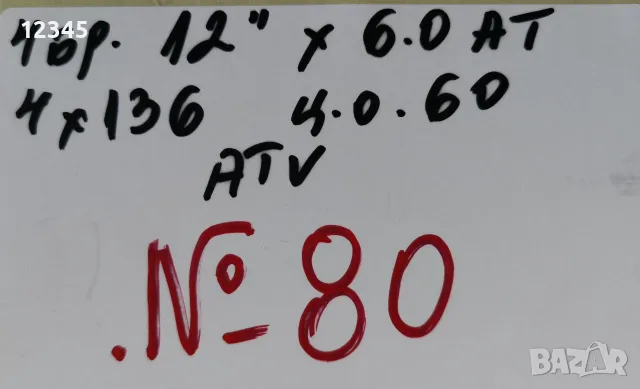 12345
1 бр. 12" x 6.0 AT
4 x 136 ц.о. 60
ATV
.№ 80
BAZAR